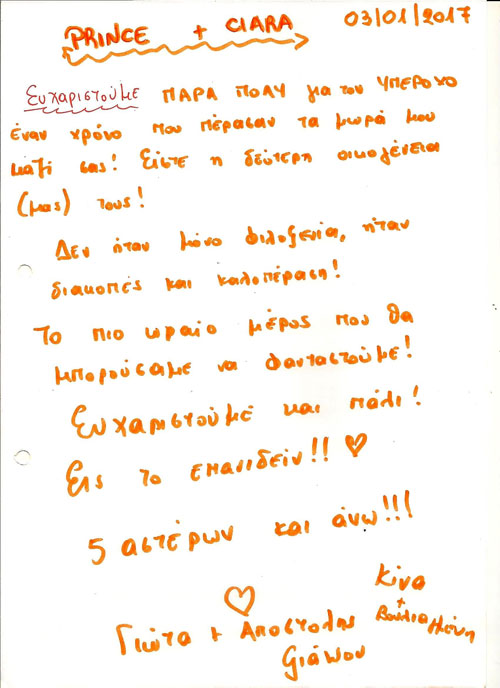 PRINCE + CIARA 03/01/2017
Ευχαριστούμε ΠΑΡΑ ΠΟΛΥ για τον ΥΠΕΡΟΧΟ
έναν χρόνο που πέρασαν τα μωρά μου
μαζί σας! Είστε η δεύτερη οικογένεια
(μας) τους!
Δεν ήταν μόνο φιλοξενία, ήταν
διακοπές και καλοπέραση!
Το πιο ωραίο μέρος που θα
μπορούσαμε να φανταστούμε!
Ευχαριστούμε και πάλι!
Εις το επανιδείν!! ♡
5 αστέρων και άνω!!!
♡
Γιώτα + Αποστόλης
Κίνα
+
Βούλια